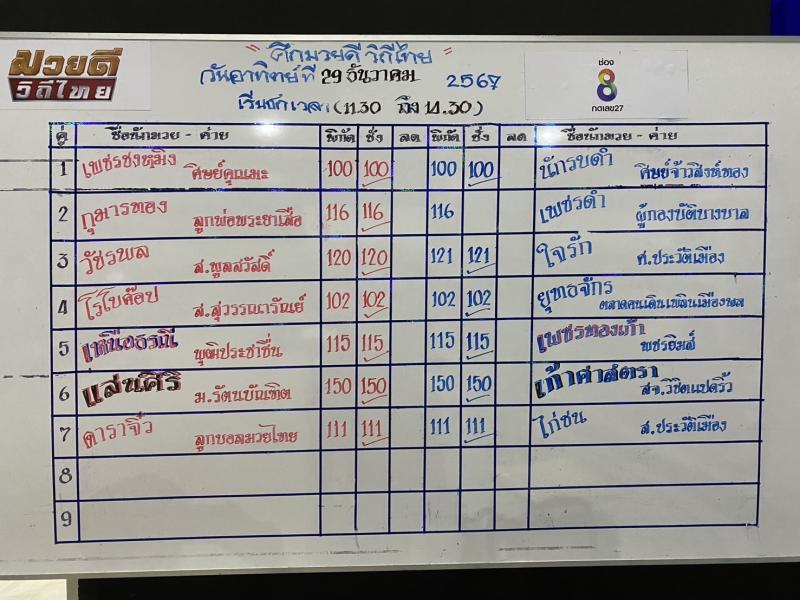 มวยดี
วิถีไทย
"ศึกมวยดี วิถีไทย"
วันอาทิตย์ที่ 29 ธันวาคม 2567
เริ่มชกเวลา (11.30 ถึง 14.30)
ช่อง
8
กดเลข27
คู่ ชื่อนักมวย - ค่าย พิกัด ชั่ง ลด พิกัด ชั่ง ลด ชื่อนักมวย - ค่าย
1 เพชรชงหมิง ศิษย์คุณเมะ 100 100 100 100 นักรบดำ ศิษย์จ้าวสิงห์ทอง
2 กุมารทอง ลูกพ่อพระยาเสือ 116 116 116 เพชรดำ ผู้กองบัติบางบาล
3 วัชรพล ส.พูลสวัสดิ์ 120 120 121 121 ใจรัก ศ.ประวัติเมือง
4 โรโบค๊อป ส.สุวรรณภัณย์ 102 102 102 102 ยุทธจักร ตลาดคนเดินเพลินเมืองพล
5 เหนือธรณี พุฒิประชาชื่น 115 115 115 115 เพชรทองเก้า พชรยิมส์
6 แสนศิริ ม.รัตนบัณฑิต 150 150 150 150 เก้าศาสตรา สจ.วิชิตแปดริ้ว
7 ดาราจิ๋ว ลูกบอลมวยไทย 111 111 111 111 ไก่ชน ส.ประวัติเมือง
8
9